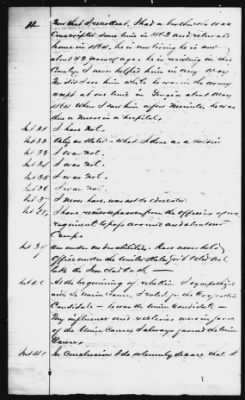 have that I recollect, I had a brother who was
Conscripted some time in 1863 and returned
home in 1864, he is now living he is now
about 43 years of age he is residing in this
County, I never helped him in any way
him while he was in the army
except at one time in Virginia about May
1864 when I saw him a few minutes, he was
then a nurse in a hospital,
Int 31 I have not.
Int 32 Only as stated - what I done as a soldier
Int 33 I was not.
Int 34 I was not.
Int 35 I was not.
Int 36 I was not.
Int 37 I never have, was not so educated
I have received passes from the officers of my
regiment to pass around and about our
Camps.
Int 39 Am under no disabilities. Have never held
office under the United States for I did not
take the Iron Clad Oath —
Int 40 At the beginning of rebellion I sympathised
with the Union Cause, I voted for the
Candidate — the Union Candidate —
My influence and were in favor
of the Union Cause, I always favored the Union
Cause.
Int 41 In Conclusion I do solemnly declare that I